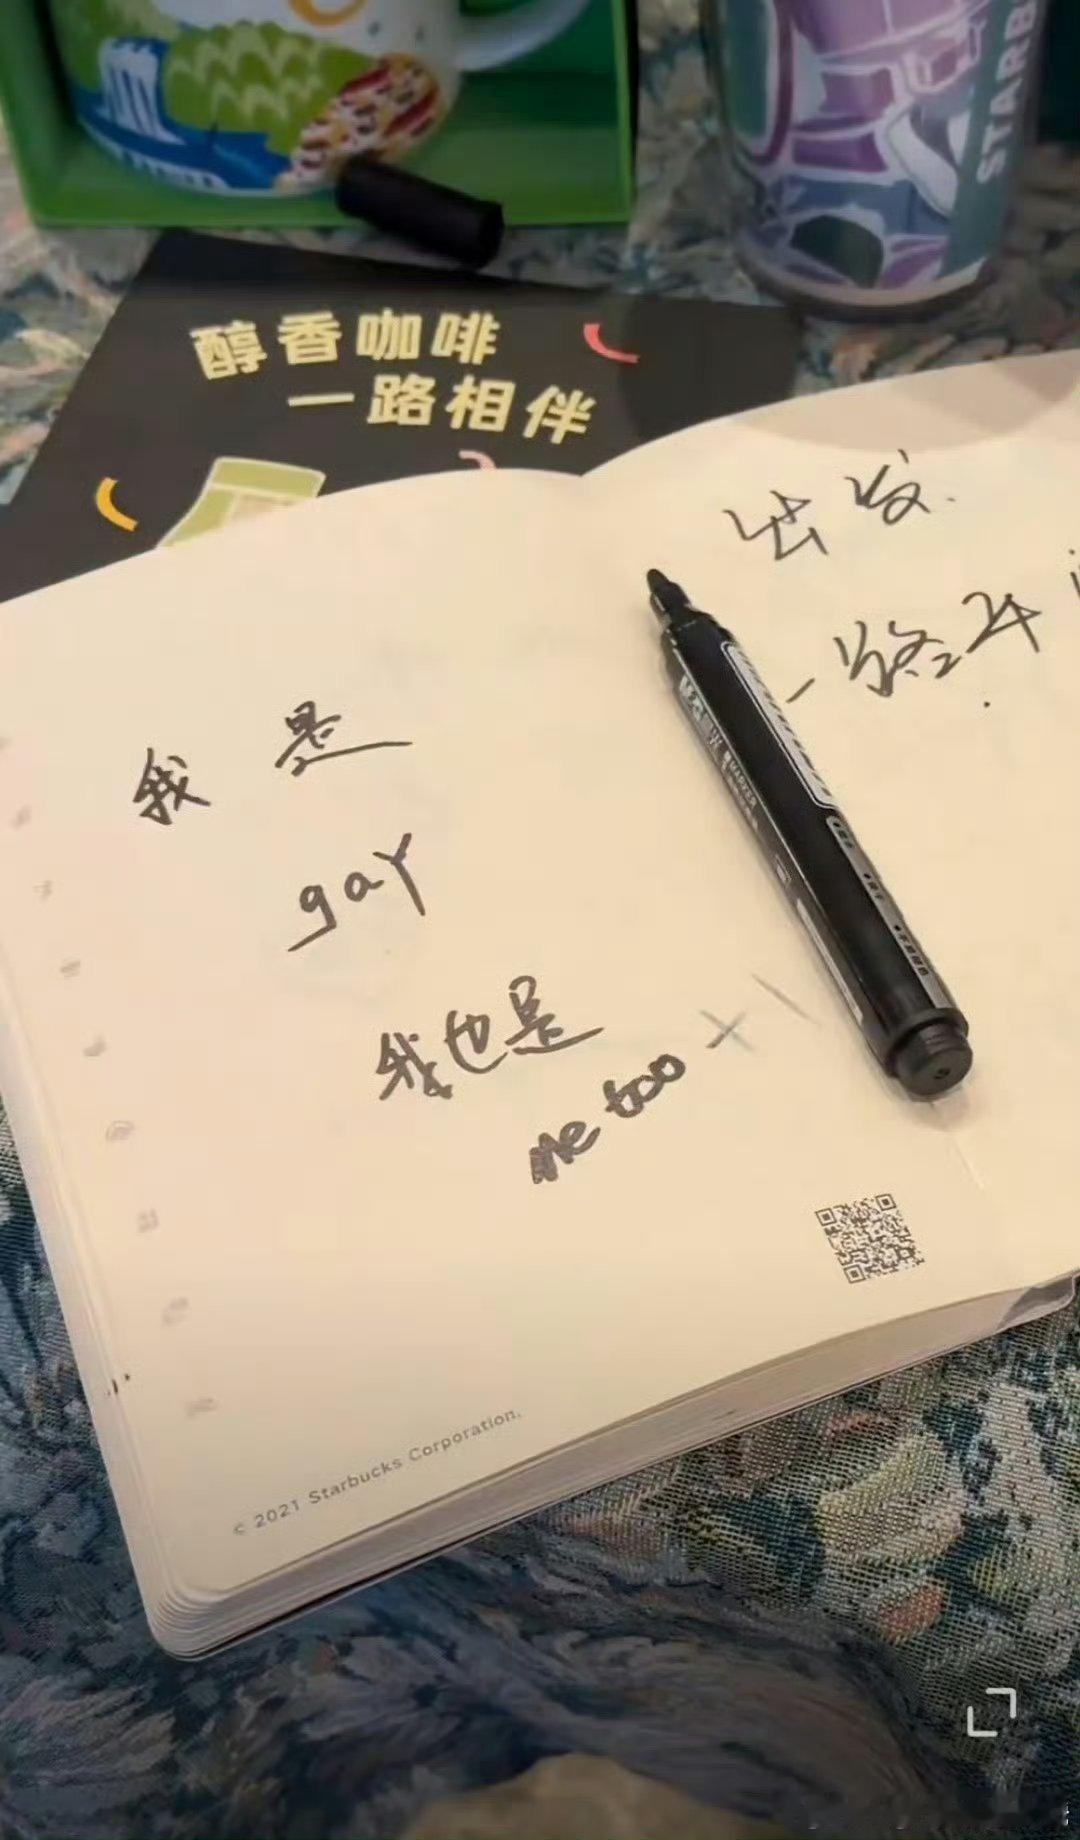 STARB
醇香咖啡
一路相伴
出发.
一路平
我是
gay
我也是
me too
© 2021 Starbucks Corporation.
MARKER